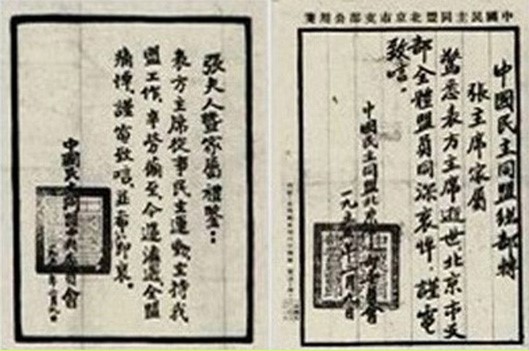 張夫人暨家屬禮鑒：
表方主席從事民主運動主持我
盟工作，辛勞備至，今遽溘逝全盟
痛悼，謹電致唁，並希節哀。
中國民主同盟中央委員會
中國民主同盟北京市支部公用箋
中國民主同盟總部轉
張主席家屬
驚悉表方主席逝世，北京市支
部全體盟員同深哀悼，謹電
致唁。
中國民主同盟北京市支部委員會
一九五 年二月 日